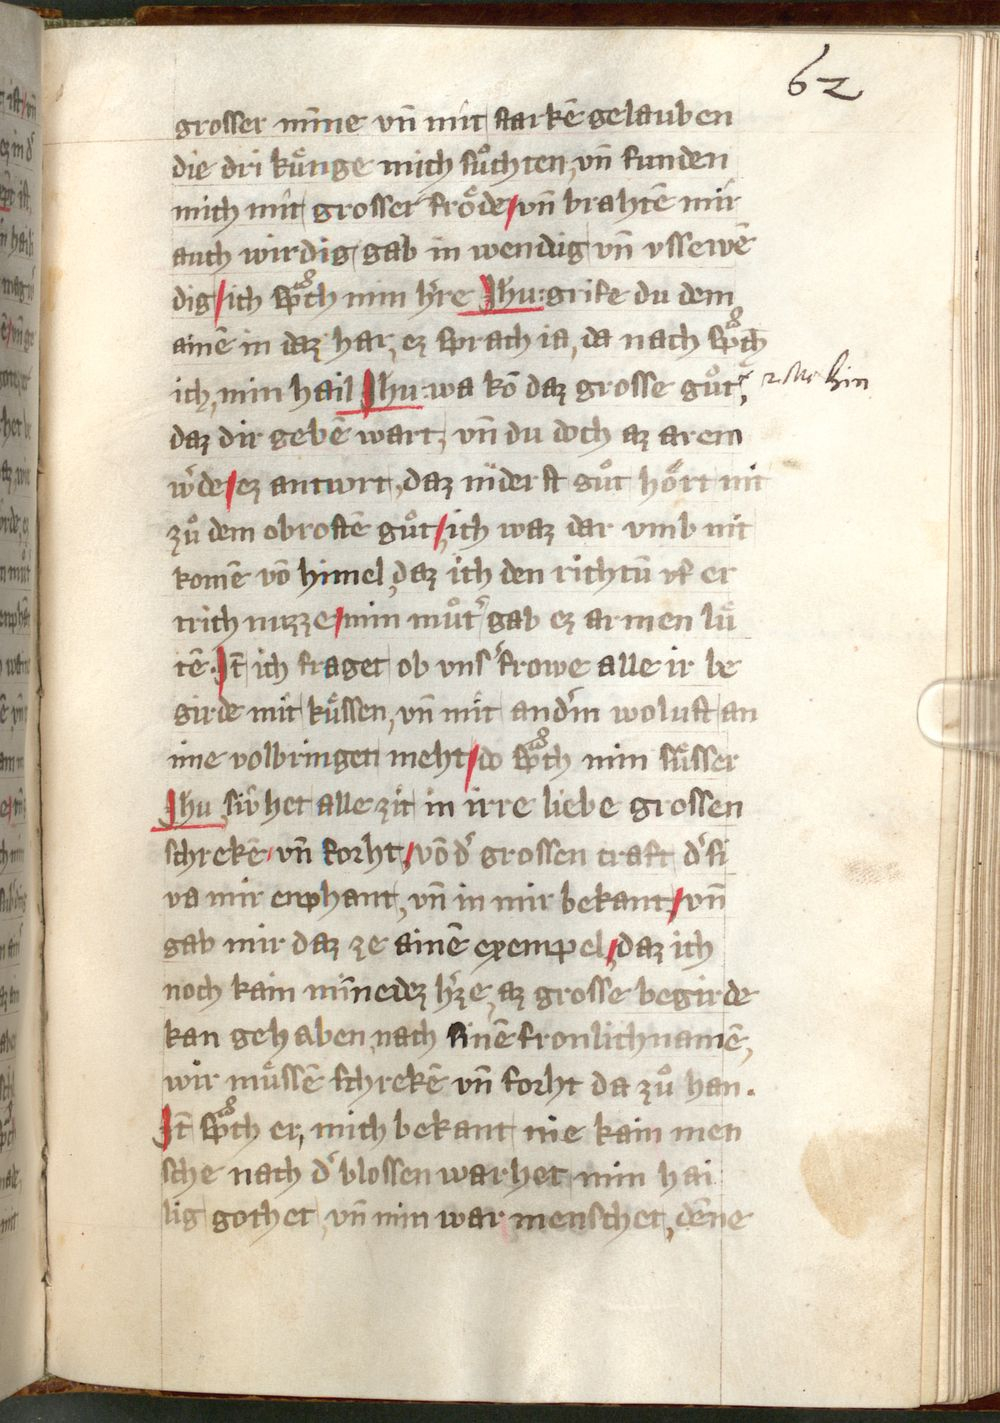 62
grosser mīne vn̄ mit starkē gelauben
die dri kúnge mich sůchten, vn̄ funden
mich mit grosser frǒde / vn̄ brahtē mir
auch wirdig gab in wendig vn̄ vssewē
dig / ich sp̄ch min h're Jhu: grife du dem
ainē in daz har, ez sprach ia, da nach sp̄ch
ich, min hail Jhu: wa kō daz grosse gůt, hin
daz dir gebē wart, vn̄ du doch az arem
w'de / ez antwrt, daz niderst gůt hǒrt nit
zů dem obrostē gůt / ich waz dar vmb nit
komē vō himel, daz ich den richtū vf er
trich nuzze / min můt' gab ez armen lú
tē. It̄ ich fraget ob vns' frowe alle ir be
girde mit kússen, vn̄ mit and'm wolust an
ime volbringen meht / do sp̄ch min sússer
Jhu, siv het alle zit in irre liebe grossen
schrekē / vn̄ forht, / vō d' grossen craft d' si
va mir enphant, vn̄ in mir bekant / vn̄
gab mir daz ze ainē exempel, / daz ich
noch kain mīnedez h'ze, az grosse begirde
kan gehaben, nach sinē fronlichnamē,
wir mússē schrekē vn̄ forht da zů han.
It̄ sp̄ch er, mich bekant nie kain men
sche nach d' blossen warhet min hai
lig gothet, vn̄ min war menschet, dēne